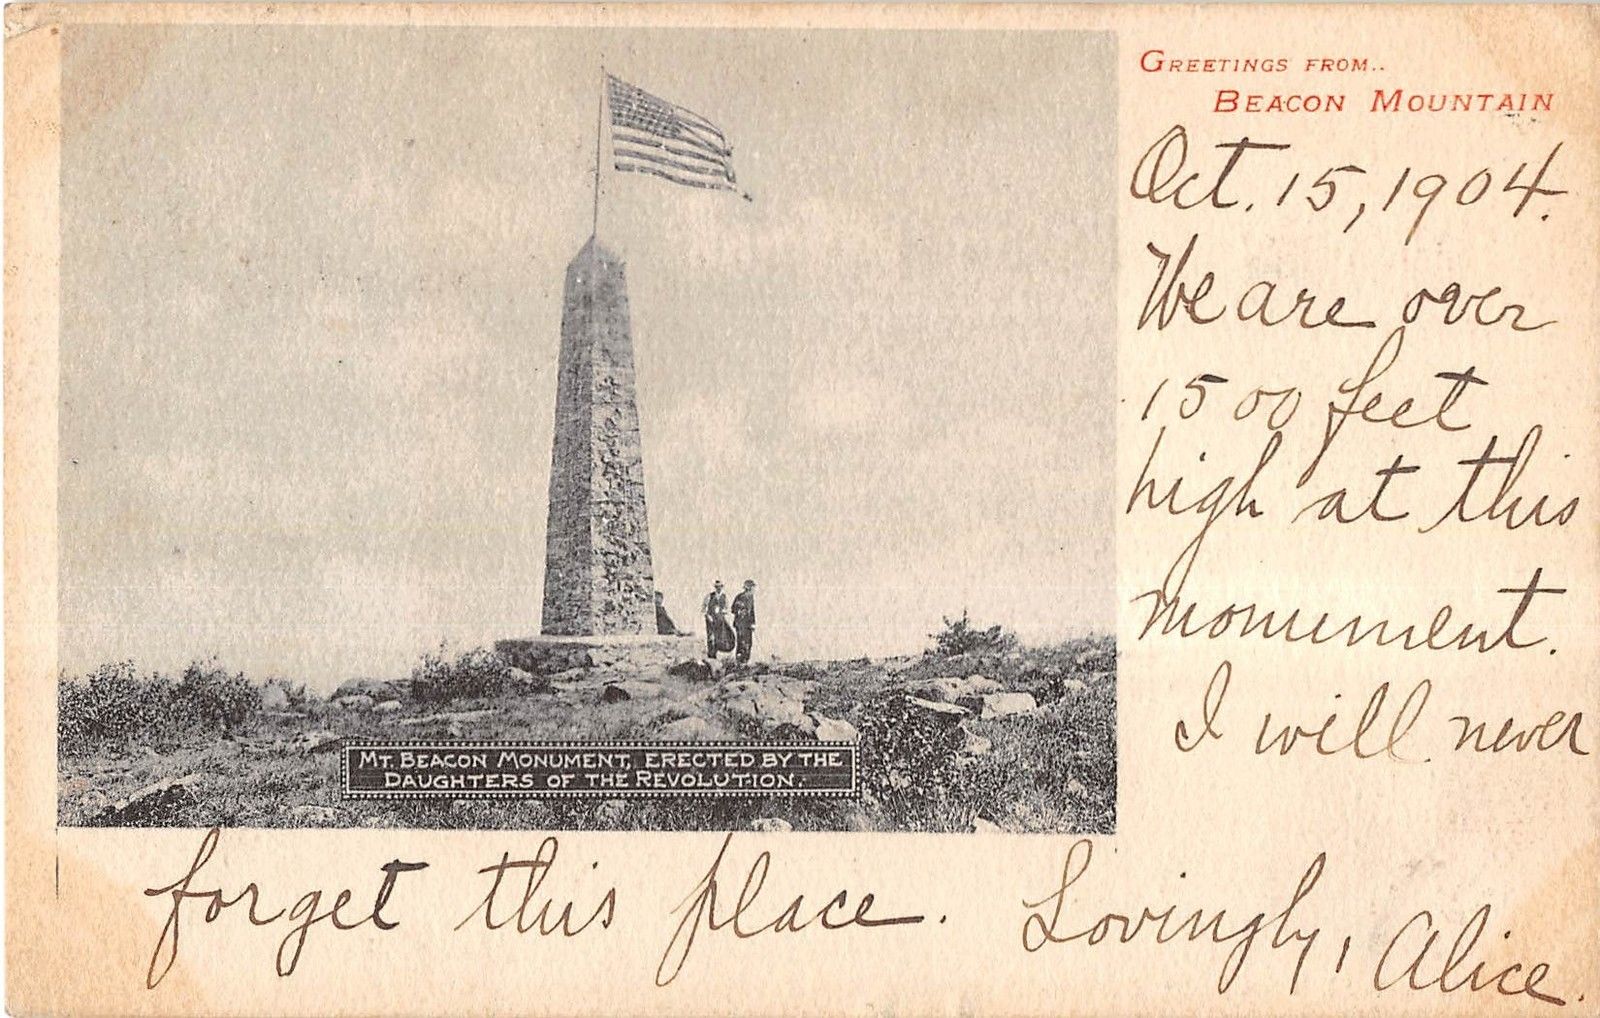 GREETINGS FROM..
BEACON MOUNTAIN
Oct. 15, 1904.
We are over
1500 feet
high at this
monument.
I will never
forget this place. Lovingly, Alice.
MT. BEACON MONUMENT, ERECTED BY THE
DAUGHTERS OF THE REVOLUTION.